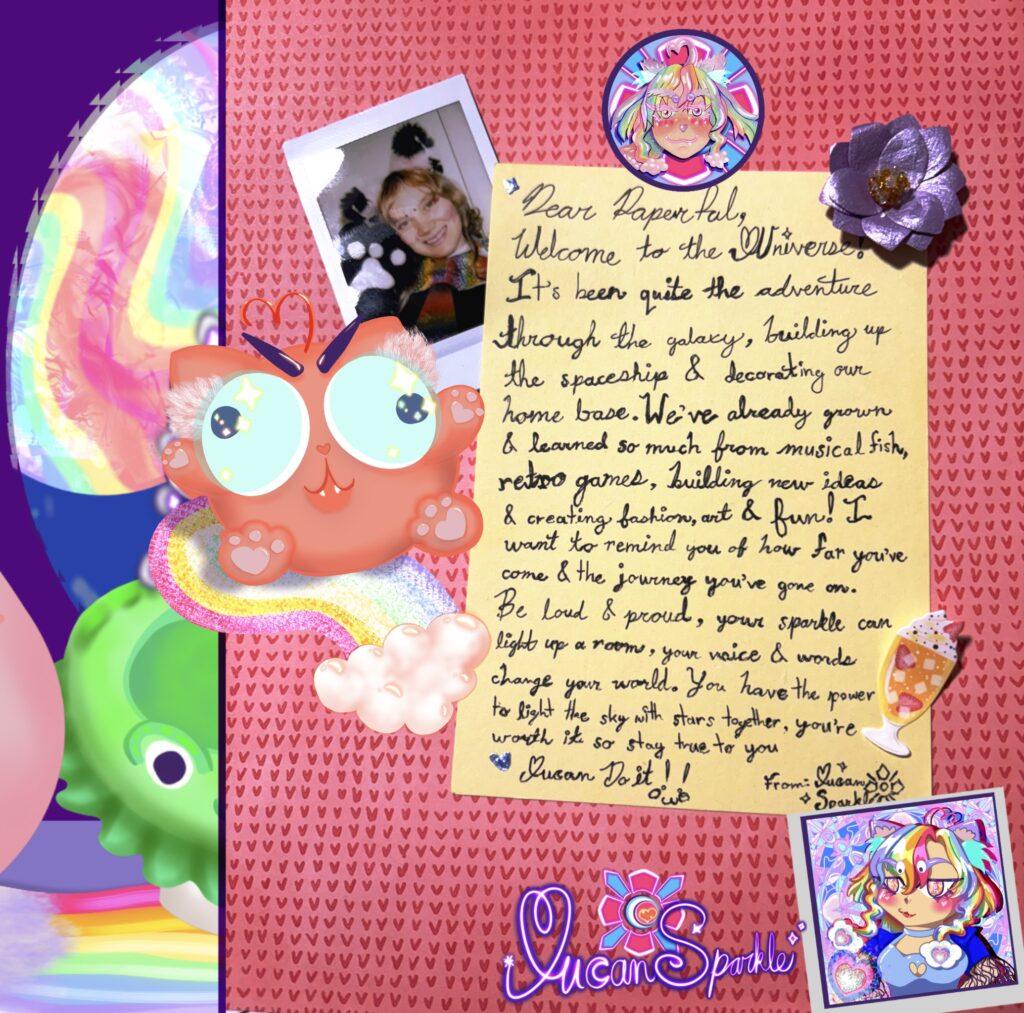 Dear Paperful,
Welcome to the Universe!
It's been quite the adventure
through the galaxy, building up
the spaceship & decorating our
home base. We've already grown
& learned so much from musical fish,
retro games, building new ideas
& creating fashion, art & fun! I
want to remind you of how far you've
come & the journey you've gone on.
Be loud & proud, your sparkle can
light up a room, your voice & words
change your world. You have the power
to light the sky with stars together, you're
worth it so stay true to you
Uucan Do it!!
From: Uucan
Sparkle
UucanSparkle